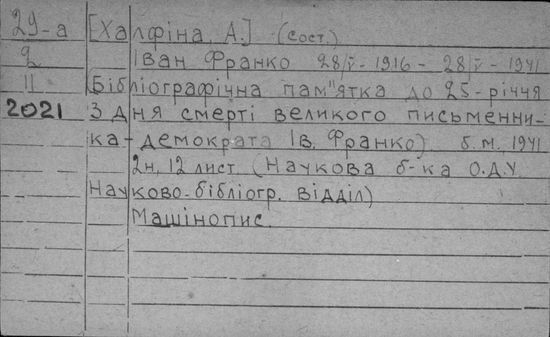 29-а [Халфіна, А.] (сост.)
2 Іван Франко 28/V - 1916 - 28/V - 1941
II Бібліографічна пам"ятка до 25-річчя
2021 З дня смерті великого письменни-
ка-демократа Ів. Франко). б.м. 1941
2н, 12 лист. (Наукова б-ка О.Д.У.
Науково-бібліогр. відділ)
Машінопис.